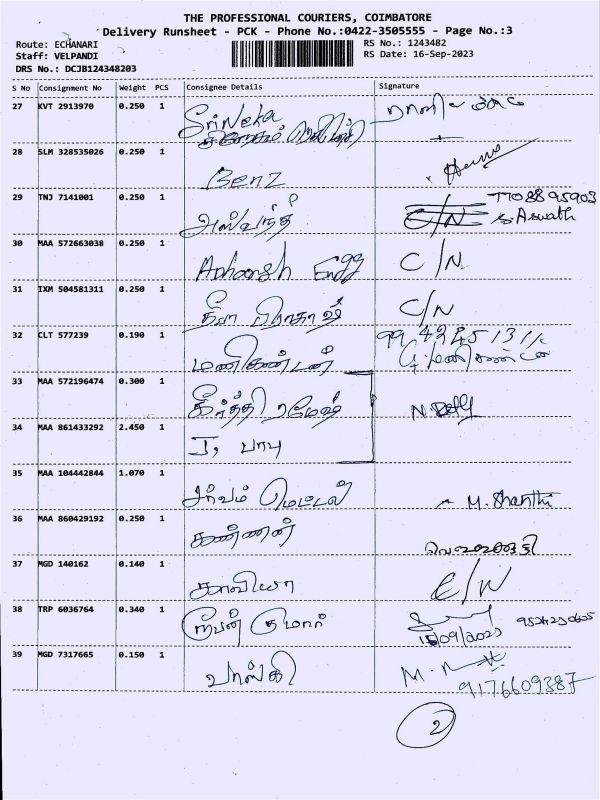 THE PROFESSIONAL COURIERS, COIMBATORE
Delivery Runsheet - PCK - Phone No.:0422-3505555 - Page No.:3
Route: ECHANARI
RS No.: 1243482
Staff: VELPANDI
RS Date: 16-Sep-2023
DRS No.: DCJB124348203
S No Consignment No Weight PCS Consignee Details Signature
27 KVT 2913970 0.250 1 SriNeka
28 SLM 328535026 0.250 1 Benz
29 TNJ 7141001 0.250 1 அஸ்வந்த் C/N S. Aswath
30 MAA 572663038 0.250 1 Engg C/N
31 IXM 504581311 0.250 1 தியா பிரகாஷ் C/N
32 CLT 577239 0.190 1 மணிகண்டன்
33 MAA 572196474 0.300 1 கீர்த்தி ரமேஷ்
34 MAA 861433292 2.450 1 J, பாபு
35 MAA 104442844 1.070 1 சர்வம் மெட்டல் M. Shanthi
36 MAA 860429192 0.250 1 கண்ணன்
37 MGD 140162 0.140 1 காவியா C/N
38 TRP 6036764 0.340 1 குமார்
15/09/2023
39 MGD 7317665 0.150 1 வாஸ்கி
9176609387
2